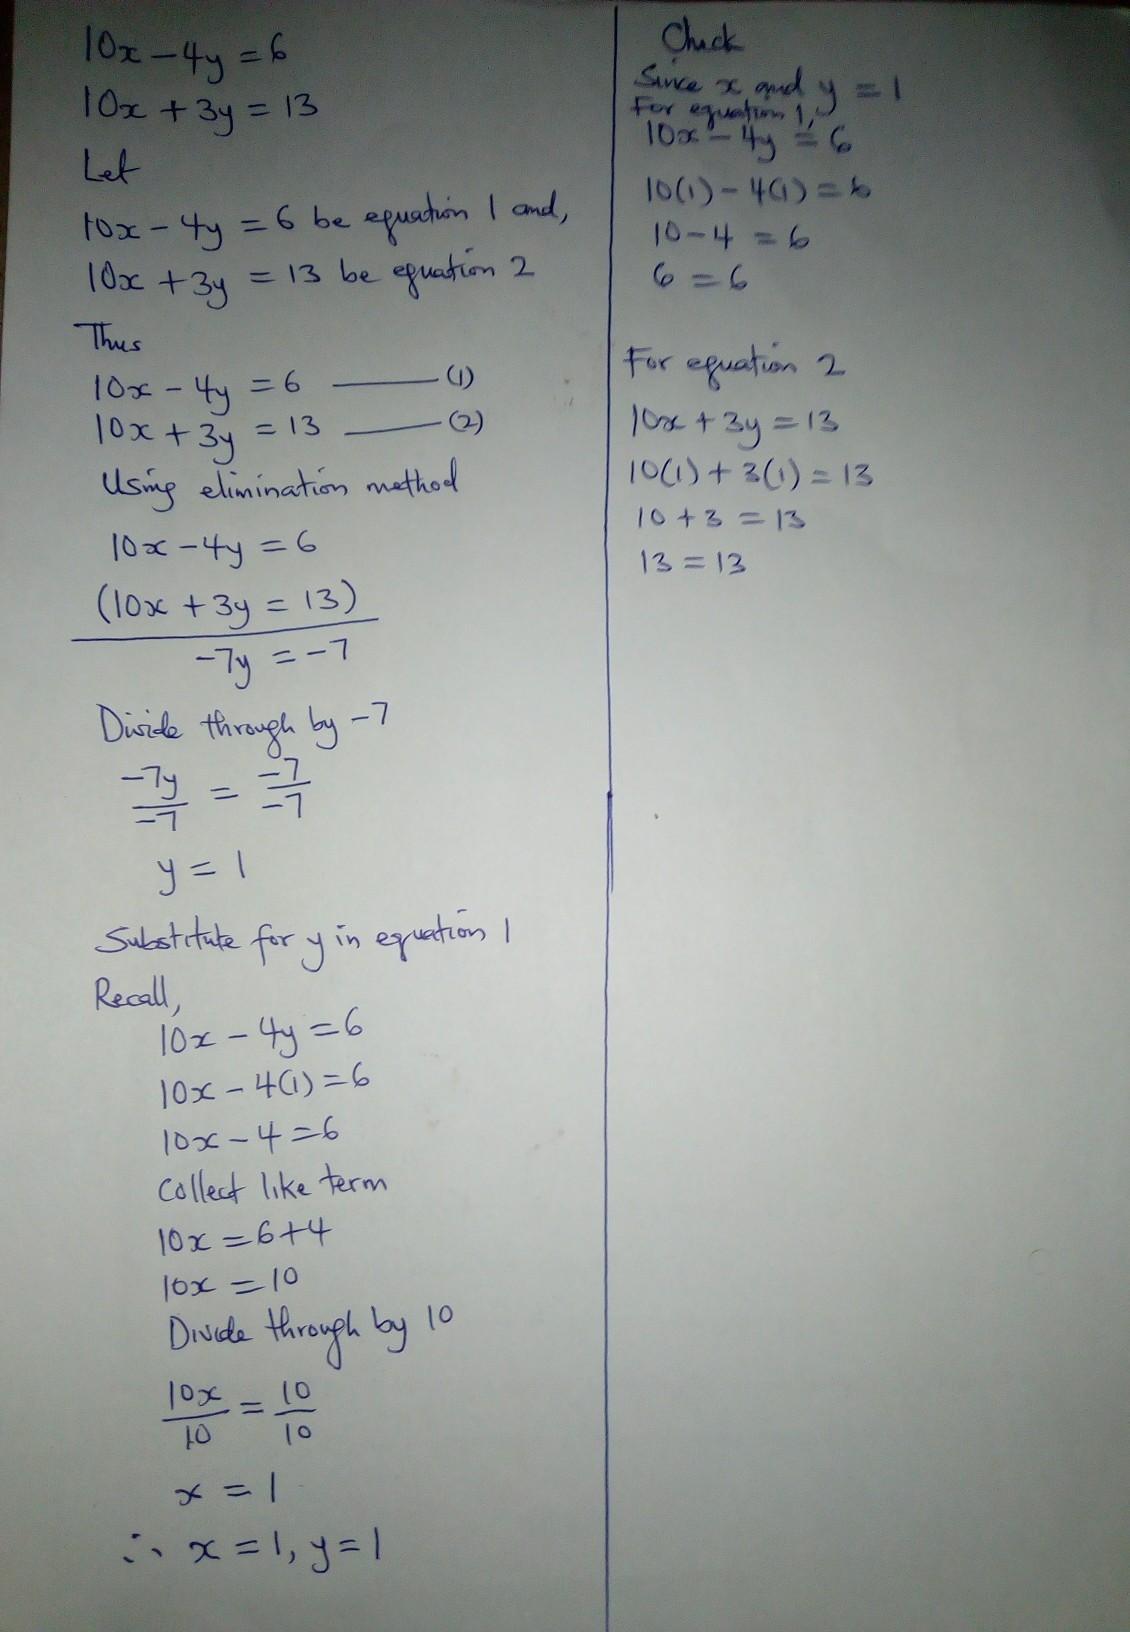 10x - 4y = 6
10x + 3y = 13
Let
10x - 4y = 6 be equation 1 and,
10x + 3y = 13 be equation 2
Thus
10x - 4y = 6 ——— (1)
10x + 3y = 13 ——— (2)
Using elimination method
10x - 4y = 6
(10x + 3y = 13)
-7y = -7
Divide through by -7
-7y/-7 = -7/-7
y = 1
Substitute for y in equation 1
Recall,
10x - 4y = 6
10x - 4(1) = 6
10x - 4 = 6
Collect like term
10x = 6+4
10x = 10
Divide through by 10
10x/10 = 10/10
x = 1
∴ x = 1, y = 1
Check
Since x and y = 1
For equation 1,
10x - 4y = 6
10(1) - 4(1) = 6
10 - 4 = 6
6 = 6
For equation 2
10x + 3y = 13
10(1) + 3(1) = 13
10 + 3 = 13
13 = 13